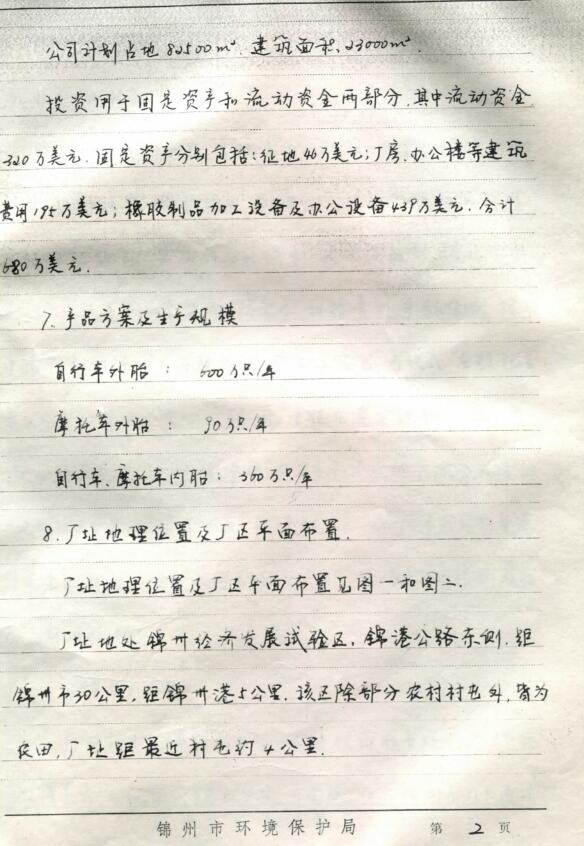 公司计划占地82500m². 建筑面积, 23000m².
投资用于固定资产和流动资金两部分, 其中流动资金
320万美元. 固定资产分别包括: 征地46万美元; 厂房、办公楼等建筑
费用195万美元; 橡胶制品加工设备及办公设备439万美元. 合计
680万美元.
7. 产品方案及生产规模
自行车外胎: 600万只/年
摩托车外胎: 90万只/年
自行车、摩托车内胎: 360万只/年
8. 厂址地理位置及厂区平面布置.
厂址地理位置及厂区平面布置见图一和图二.
厂址地处锦州经济发展试验区, 锦港公路东侧. 距
锦州市30公里, 距锦州港5公里. 该区除部分农村村屯外, 皆为
农田, 厂址距最近村屯约4公里.
锦州市环境保护局 第 2 页